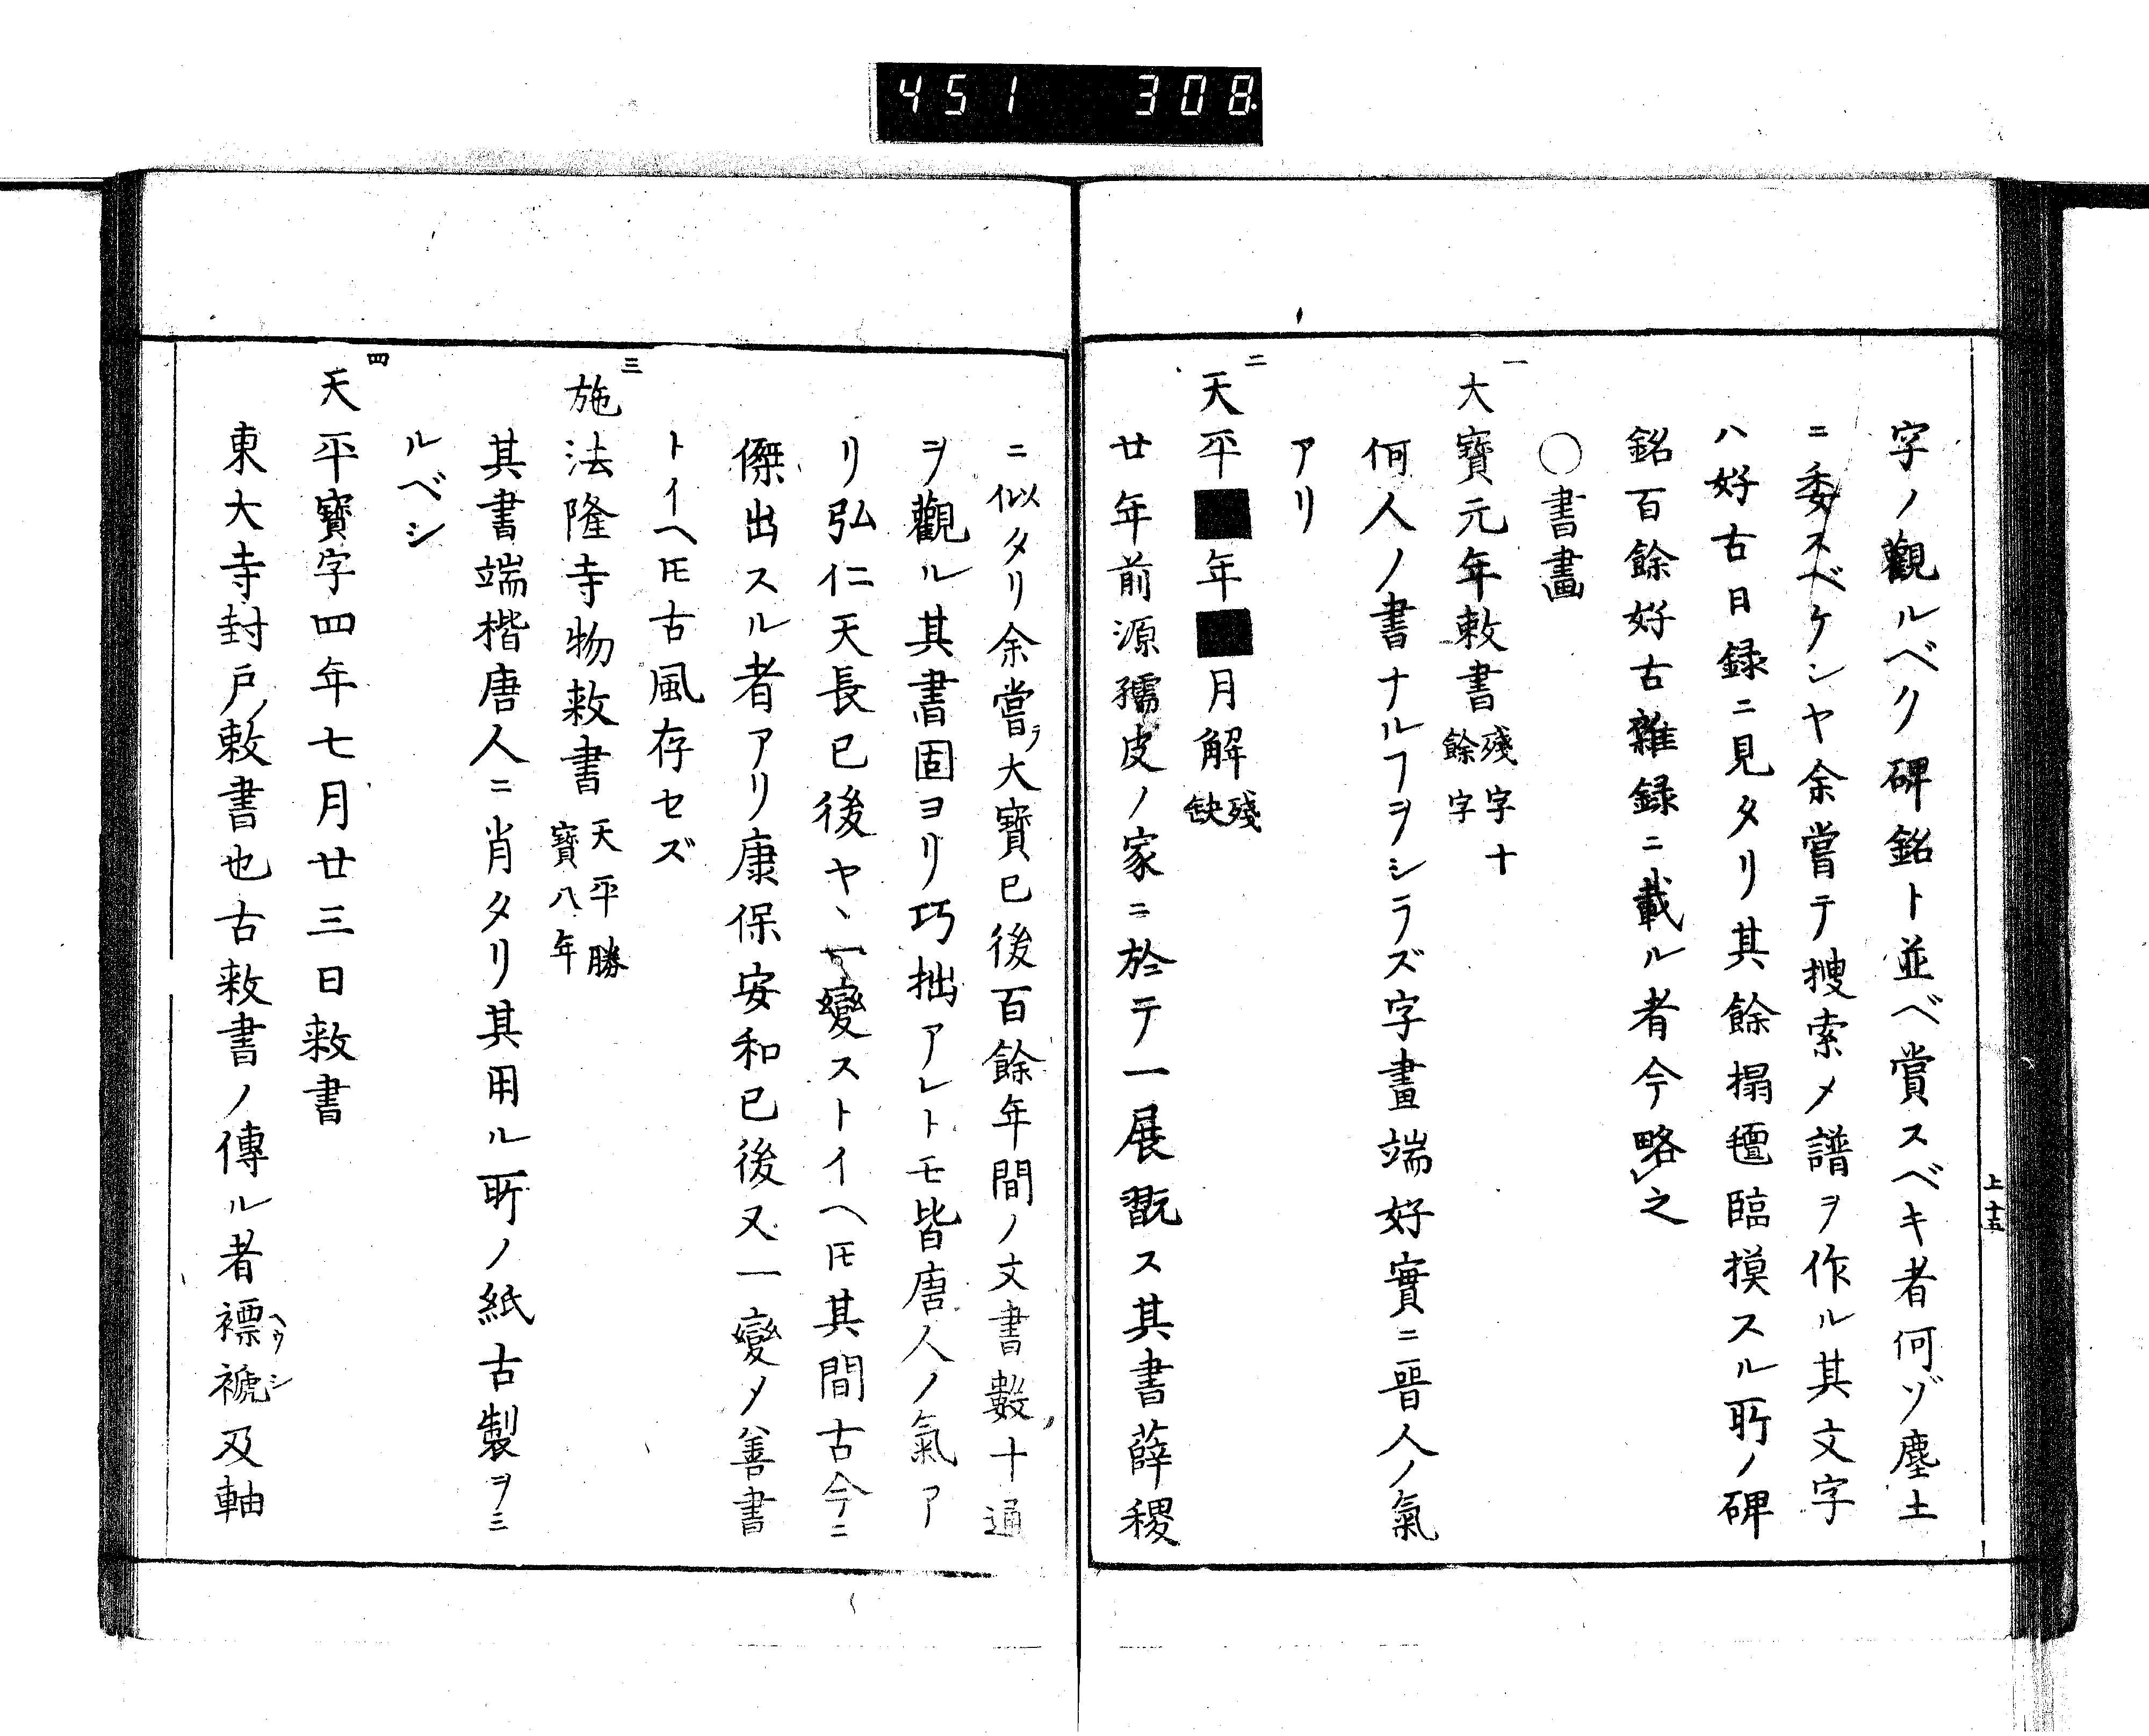 451 308
字ノ觀ルベク碑銘ト並ベ賞スベキ者何ゾ塵土
ニ委スベケンヤ余嘗テ搜索メ譜ヲ作ル其文字
ハ好古日録ニ見タリ其餘搨氊臨摸スル所ノ碑
銘百餘好古雜録ニ載ル者今略之
〇書畫
一
大寶元年敕書 殘字十
餘字
何人ノ書ナルヿヲシラズ字畫端好實ニ晋人ノ氣
アリ
二
天平■年■月解 殘
缺
廿年前源孺皮ノ家ニ於テ一展翫ス其書薛稷
上十五
ニ似タリ余嘗ラ大寶已後百餘年間ノ文書數十通
ヲ觀ル其書固ヨリ巧拙アレトモ皆唐人ノ氣ア
リ弘仁天長已後ヤヽ一變ストイヘ𪜈其間古今ニ
傑出スル者アリ康保安和已後又一變メ善書
トイヘ𪜈古風存セズ
三
施法隆寺物敕書 天平勝
寶八年
其書端楷唐人ニ肖タリ其用ル所ノ紙古製ヲミ
ルベシ
四
天平寶字四年七月廿三日敕書
東大寺封戸ノ敕書也古敕書ノ傳ル者褾褫ヘウシ及軸